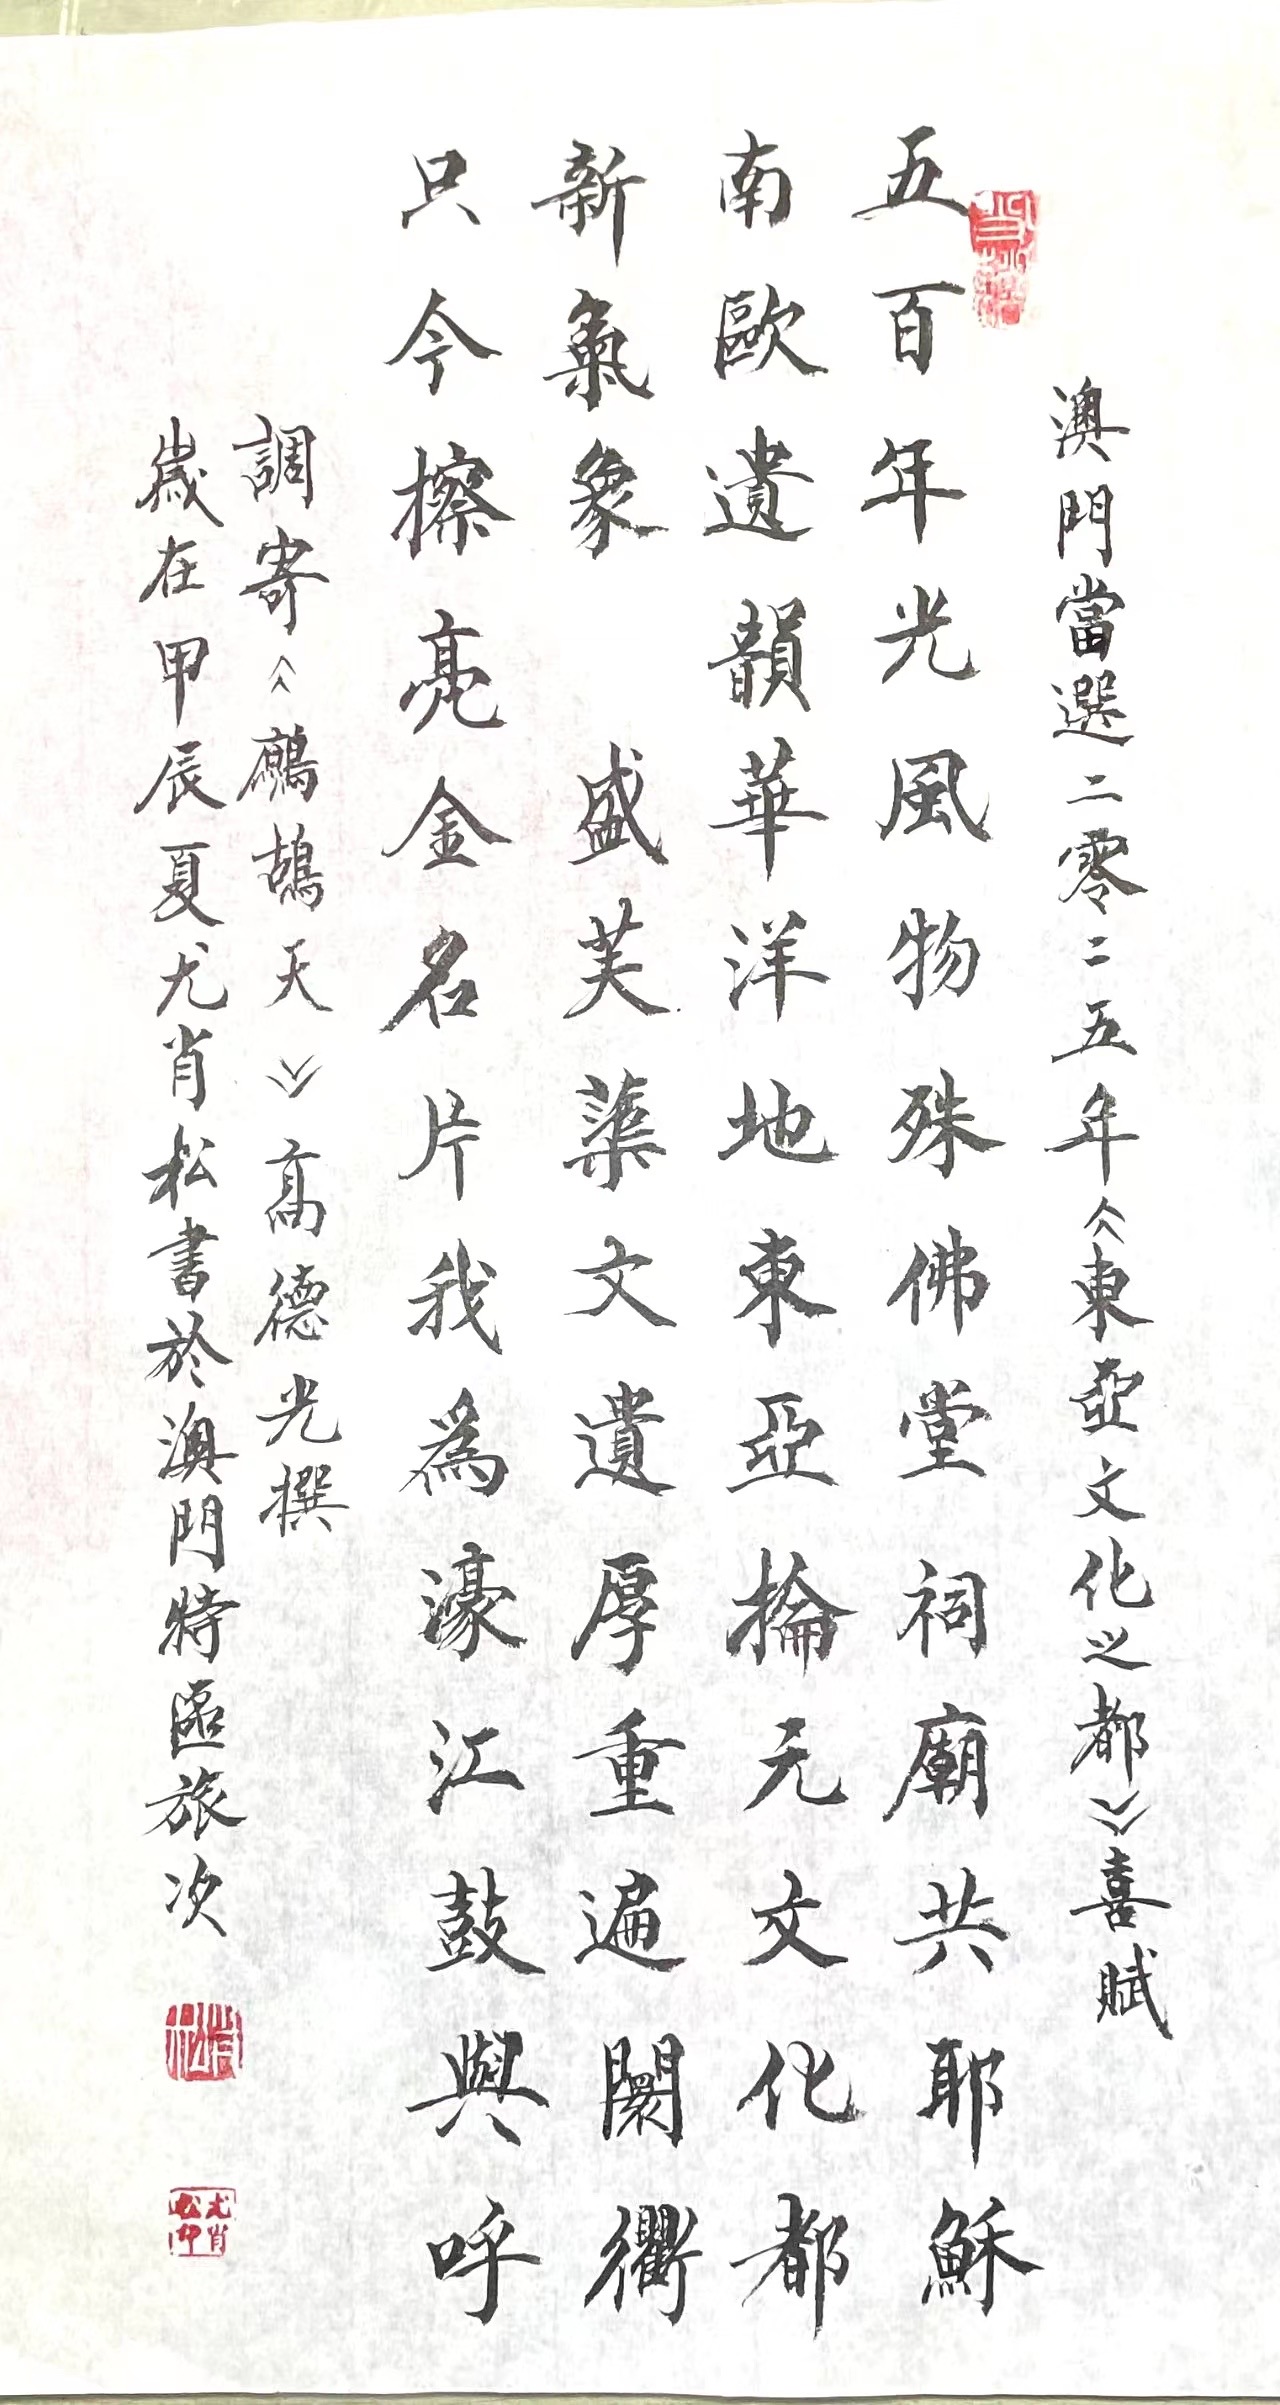 澳門當選二零二五年《東亞文化之都》喜賦
五百年光風物殊佛堂祠廟共耶穌
南歐遺韻華洋地東亞掄元文化都
新氣象　盛芙蕖文遺厚重遍闤衢
只今擦亮金名片我為濠江鼓與呼
調寄《鷓鴣天》高德光撰
歲在甲辰夏尤肖松書於澳門特區旅次
肖松
尤肖松印